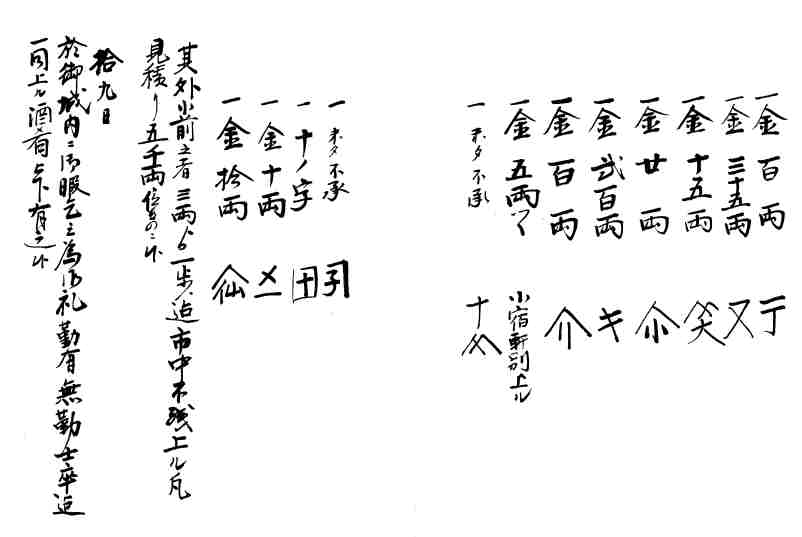 一金 百両
一金 三十五両 又
一金 十五両
一金 廿両
一金 弐百両 キ
一金 百両 介
一金 五両ツヽ 小宿軒別上ル
一 未タ不承
一 未タ不承
一 十ノ字 田
一 金十両
一金 拾両
其外小前之者三両より一歩迄市中不残上ル凡
見積り五千両位の
拾九日
於御城内ニ御暇乞之為御礼勤有無勤士卒迄
一同上ル酒肴被下有之